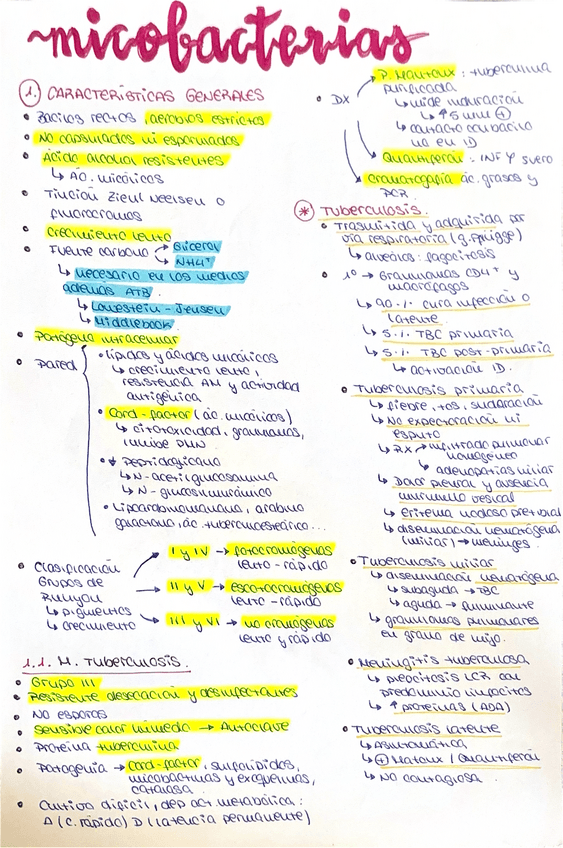 micobacterias
1. CARACTERÍSTICAS GENERALES
• Bacilos rectos, aerobios estrictos
• No capsulados ni esporulados
• Ácido alcohol resistentes
↳ Ác. micólicos
• Tinción Ziehl Neelsen o
fluorocromos
• Crecimiento lento
• Fuente carbono → Glicerol
→ NH4+
↳ necesario en los medios
además ATB
↳ Lowestein-Jensen
↳ Middlebook
• Patógeno intracelular
• Pared
• lípidos y ácidos micólicos
↳ crecimiento lento,
resistencia AM y actividad
antigénica
• Cord-factor (ác. micólicos)
↳ citotoxicidad, granulomas,
inhibe PMN
• ↓ Peptidoglicano
↳ N-acetilglucosamina
↳ N-glucosilmurámico
• Lipoarabinomanana, arabino
galactano, ác. tuberculoesteárico...
• Clasificación
Grupos de
Runyon
↳ pigmentos
↳ crecimiento
I y IV → fotocromógenos
lento-rápido
II y V → escotocromógenos
lento-rápido
III y VI → no cromógenos
lento y rápido
1.1. M. Tuberculosis.
• Grupo III
• Resistente desecación y desinfectantes
• No esporas
• Sensible calor húmedo → Autoclave
• Proteína tuberculina
• Patogenia → cord-factor, sulfolípidos,
micobactinas y exoquelinas,
catalasa.
• Cultivo difícil, dep act. metabólica:
A (c. rápido) D (latencia permanente)
• DX
P. Mantoux: tuberculina
purificada
↳ mide induración
↳ ↑5mm ⊕
↳ contacto con bacilo
no en ID
Quantiferon: INF γ suero
Cromatografía ác. grasos y
PCR
* Tuberculosis.
• Trasmitida y adquirida por
vía respiratoria (g. Pflügge)
↳ alveolos: fagocitosis
• 1º → Granulomas CD4+ y
macrófagos
↳ 90.1. cura infección o
latente
↳ 5.1. TBC primaria
↳ 5.1. TBC post-primaria
↳ activación ID.
• Tuberculosis primaria
↳ fiebre, tos, sudoración
↳ No expectoración ni
esputo
↳ RX → infiltrado pulmonar
homogéneo
↳ adenopatías hiliar
↳ Dolor pleural y ausencia
murmullo vesical
↳ eritema nodoso pretibial
↳ diseminación hematógena
(miliar) → meninges.
• Tuberculosis miliar
↳ diseminación hematógena
↳ subaguda → TBC
↳ aguda → fulminante
↳ granulomas pulmonares
en grano de mijo.
• Meningitis tuberculosa
↳ pleocitosis LCR con
predominio linfocitos
↳ ↑ proteínas (ADA)
• Tuberculosis latente
↳ Asintomática
↳ ⊕ Matoux / Quantiferon
↳ No contagiosa.